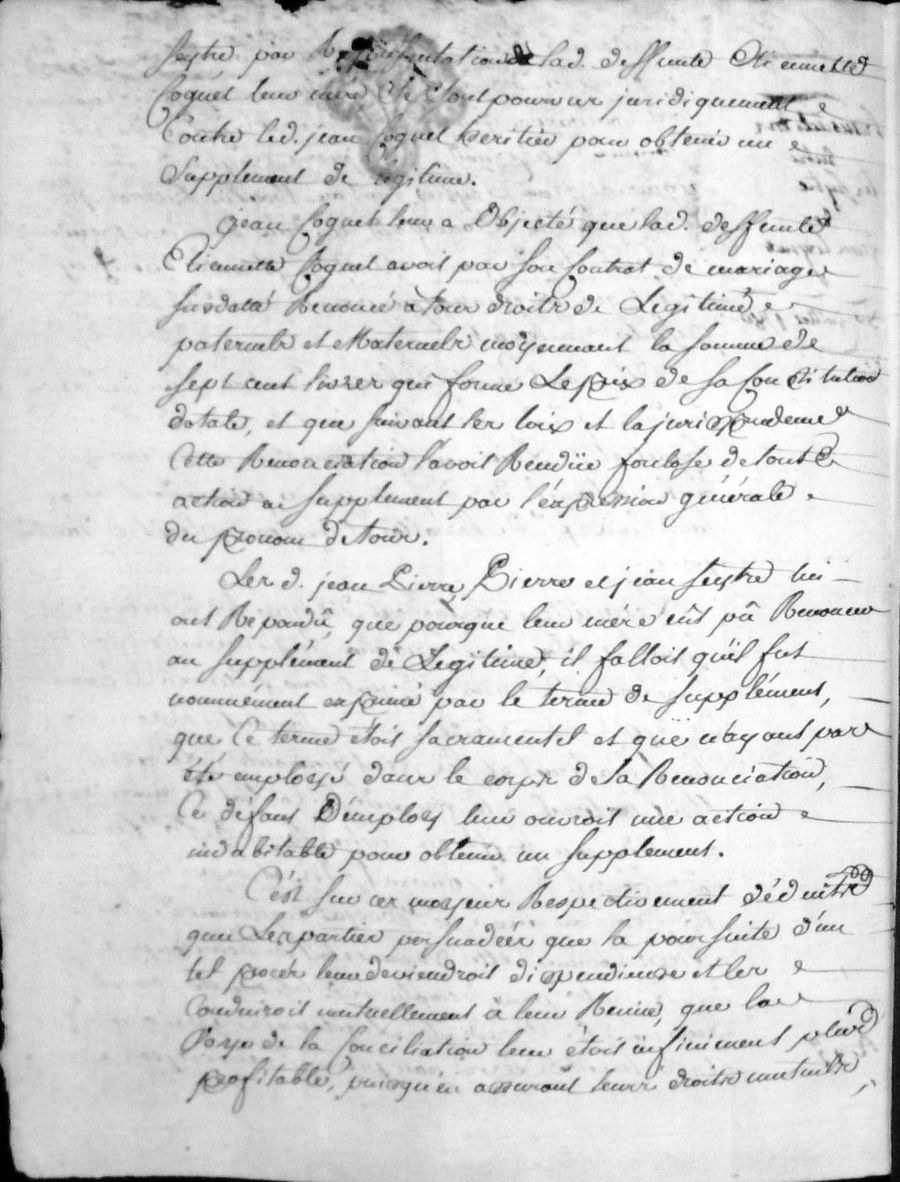 seytre par Représentation de lad. deffunte Etiennette
Coquet leur mere et tout pourvu juridiquement
Contre led. jean Coquet heritier pour obtenir un
Supplement de legitime.
jean Coquet leur a Objecté que lad. deffunte
Etiennette Coquet avoit par son Contrat de mariage
susdatté Renoncé a tous droits de Legitime
paternels et Maternels moyennant la somme de
sept cent livres qui forme Le prix de sa Constitution
dotale, et que suivant les loix et la jurisprudence
Cette Renonciation l'avoit Rendüe forclose de toute
action en supplement par l'expression générale
du pronom de tous.
Les d. jean Pierre, Pierre et jean seytre lui
ont Repondû que pourque leur mére eût pû Renoncer
au supplément de Legitime, il falloit qu'il fut
nommément exprimé par le terme de supplément,
que Ce terme étoit sacramentel et que n'ayant pas
été employé dans le corps de la Renonciation,
Ce défaut D'employ leur ouvroit une action
indubitable pour obtenir un supplement.
C'est sur ces moyens Respectivement déduits
que Les parties persuadées que la poursuite d'un
tel procés leur deviendroit dispendieuse et les
Conduiroit mutuellement à leur Ruine, que la
Voye de la Conciliation leur étoit infiniment plus
profitable, puisqu'en assurant leurs droits mutuels,